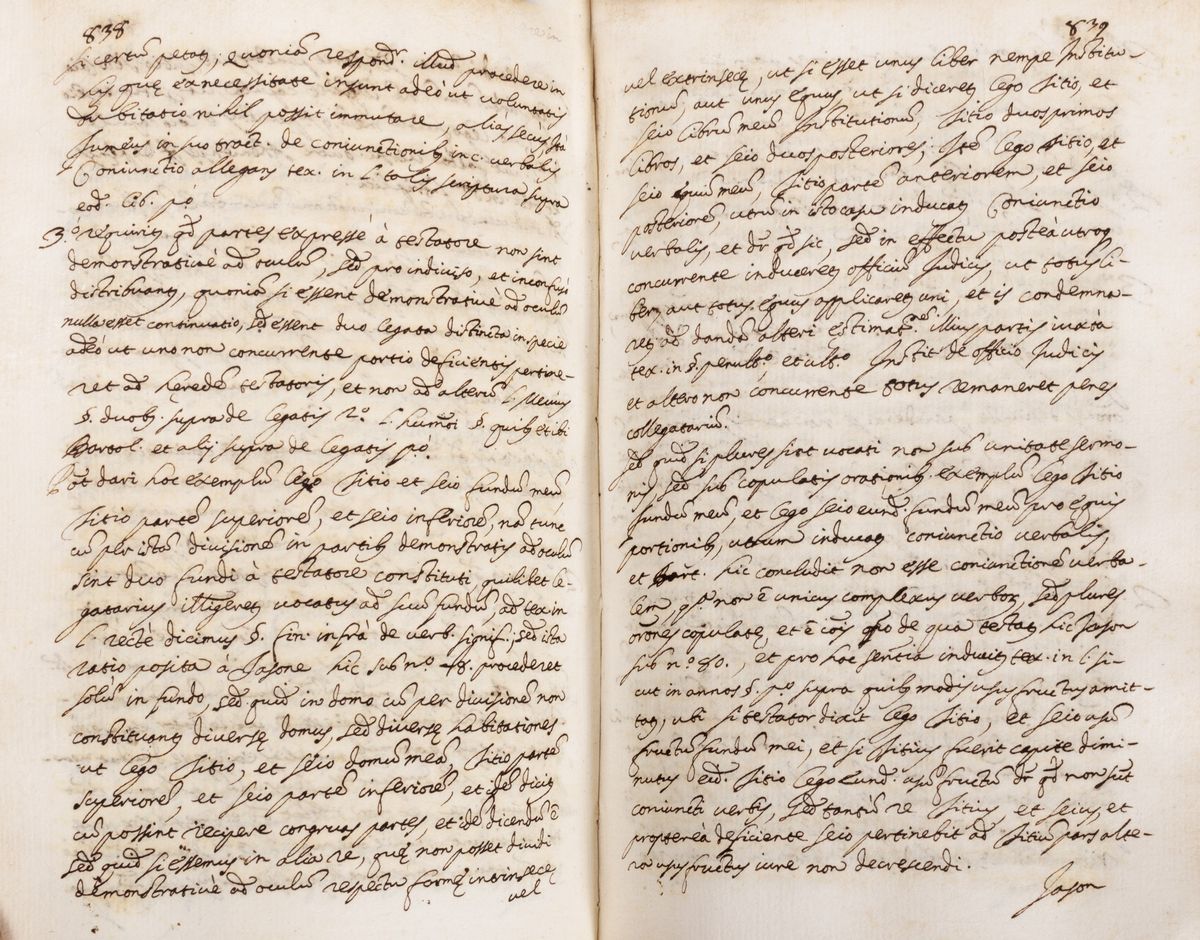 838
si certũ petat, quoniã respond.r illud procedere in
ijs, quę ex necessitate insunt adeò ut voluntatis
dubitatio nihil possit immutare, aliàs secus ità
in suo tract. de coniunctionib, in c. verbalis
Coniunctio allegans tex. in l. talis scriptura supra
eod. lib. p.o
3.o requirit qd partes expressè à testatore non sint
demonstrativè ad oculũ, sed pro indiviso, et inconfuso
distribuant, quoniam si essent demonstrativè ad oculũ
nulla esset continuatio, sed essent duo legata distincta in specie
adeò ut uno non concurrente portio deficientis pertine-
ret ad hęredẽ testatoris, et non ad alterũ l. Mevius
§. duob. supra de legatis 2.o l. §. quib, et ibi
Bartol. et alij supra de legatis p.o
Pot dari hoc exemplũ lego Titio et Seio fundũ meũ
Titio partẽ superiorẽ, et Seio inferiorẽ, nã tunc
cũ per istã divisionẽ in partib, demonstratis ad oculũ
sint duo fundi à testatore constituti quilibet le-
gatarius vocatus ad suũ fundũ, ad tex. in
l. rectè dicimus §. fin. infrà de verb. signif.; sed ista
ratio posita à Jasone hic sub n.o 78. procederet
solũ in fundo, sed quid in domo cũ per divisionẽ non
constituant diversę domus, sed diversę habitationes
ut lego Titio, et Seio domũ meã, Titio partẽ
superiorẽ, et Seio partẽ inferiorẽ, et idẽ dicit
cũ possint recipere congruas partes, et idẽ dicendũ ẽ
sed quid si essemus in alia re, quę non posset dividi
demonstrativè ad oculũ respectu formę intrinsecę
vel
839
vel extrinsecę, ut si esset unus liber nempe Institu-
tionũ, aut unus equus, ut si diceret lego Titio, et
Seio librũ meũ Institutionũ, Titio duos primos
libros, et Seio duos posteriores; Itẽ lego Titio, et
Seio equũ meũ, Titio partẽ anteriorem, et Seio
posteriorẽ, utrũ in isto casu inducat Coniunctio
verbalis, et dr qd sic, sed in effectu posteà utroq
concurrente induceret officiũ Judicis, ut totus li-
ber, aut totus equus applicaret uni, et is condemna-
ret ad dandã alteri estimat.nẽ illius partis iuxtà
tex. in §. penult.o et ult.o Instit. de officio Judicis
et altero non concurrente totus remaneret penes
collegatariũ.
Sed quid si plures sint vocati non sub unitate sermo-
nis, sed sub copulatis orationib, exemplũ lego Titio
fundũ meũ, et lego Seio eund. fundũ meũ pro equis
portionib, utrum inducat coniunctio verbalis,
et Bart. hic concludit non esse coniunctionẽ verba-
lem, q.a non ẽ unicus complexus verbor, sed plures
orões copulatę, et ẽ cõis opio de qua testat hic Jason
sub n.o 80., et pro hac sentia inducit tex. in l. si-
cut in annos §. p.o supra quib, modis ususfructus amit-
tat, ubi si testator dixit lego Titio, et Seio usũ
fructũ fundũ mei, et si Titius fuerit capite dimi-
nutus eid. Titio lego eund. usũfructũ dr qd non sũt
coniuncti verbis, sed tantũ re Titius et Seius, et
proptereà deficiente Seio pertinebit ad Titiũ pars alte-
ra ususfructus iure non decrescendi.
Jason